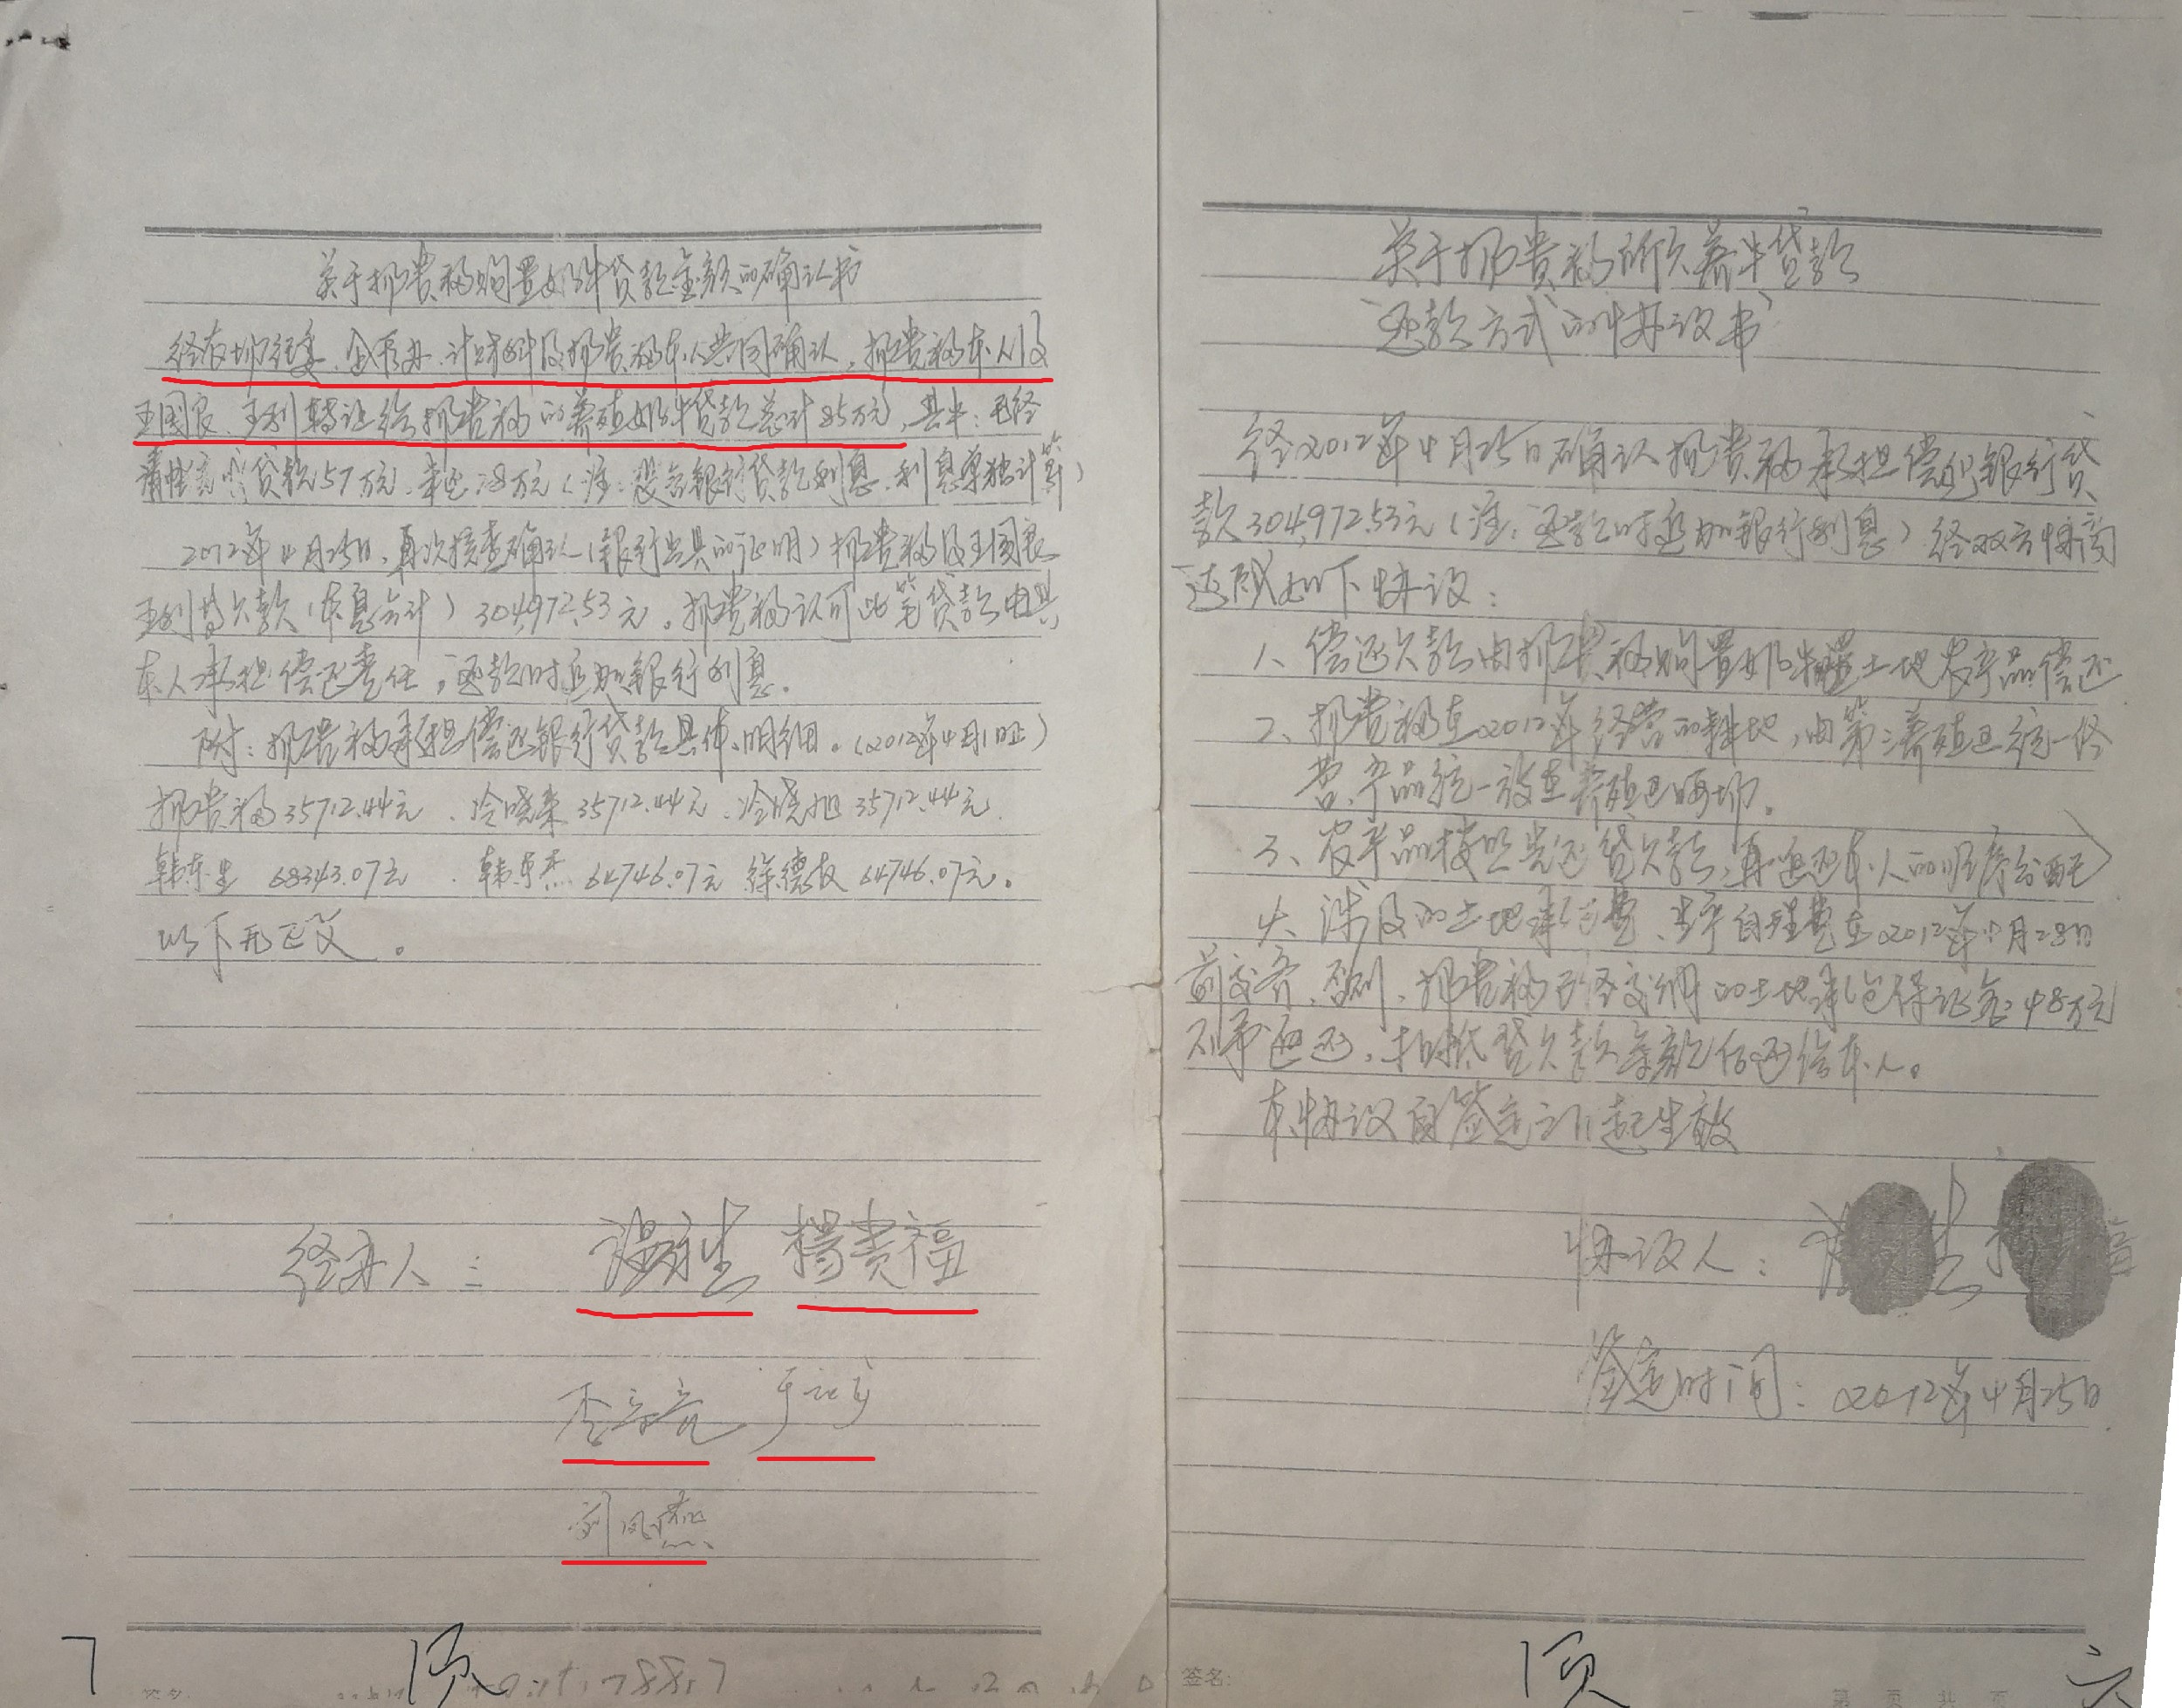 关于扬贵福购置奶牛贷款金额的确认书
经农场纪委、金不办、计财科及扬贵福本人共同确认，扬贵福本人及
王国良、王利转让给扬贵福的养殖奶牛贷款总计85万元，其中：已经
贷款57万元，未还28万元（注：银行贷款利息，利息单独计算）
2012年4月25日，再次核查确认（银行出具的证明）扬贵福及王国良
王利等欠款（本息合计）304,972.53元。扬贵福认可此笔贷款由其
本人承担偿还责任，还款时追加银行利息。
附：扬贵福承担偿还银行贷款具体明细。（2012年4月1日止）
扬贵福35712.44元、冷晓东35712.44元、冷晓旭35712.44元
韩东生 68343.07元、韩东杰 64746.07元 徐德友 64746.07元。
以下无正文。
经办人：杨贵福
7
页
关于扬贵福所欠养牛贷款
还款方式的协议书
经2012年4月25日确认扬贵福承担偿还银行贷
款304,972.53元（注：还款时追加银行利息）经双方协商
达成如下协议：
1、偿还欠款由扬贵福购置奶牛土地农产品偿还
2、扬贵福在2012年经营的耕地，由第二养殖区统一经
营、产品统一放在养殖区晒场。
3、农产品按照先还贷欠款，再返还本人的顺序分配
4、涉及的土地承包费、生产自理费在2012年4月28日
前交齐，否则，扬贵福已经交纳的土地承包保证金：48万元
不予返还，抵贷欠款余款后返给本人。
本协议自签定之日起生效
协议人：
签定时间：2012年4月25日
签名：
页
六
第 页 共 页